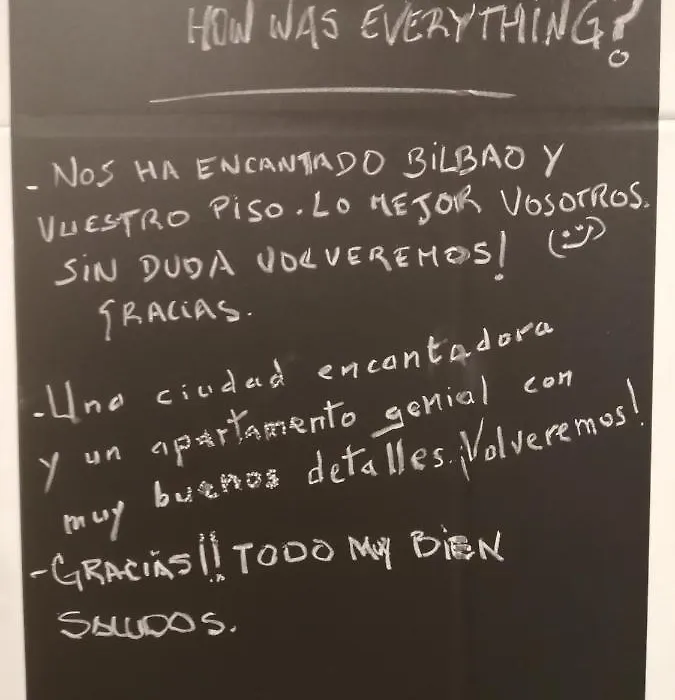 HOW WAS EVERYTHING?
- NOS HA ENCANTADO BILBAO Y
VUESTRO PISO. LO MEJOR VOSOTROS.
SIN DUDA VOLVEREMOS!
GRACIAS.
- Una ciudad encantadora
y un apartamento genial con
muy buenos detalles. ¡Volveremos!
- GRACIAS!! TODO MUY BIEN
SALUDOS.